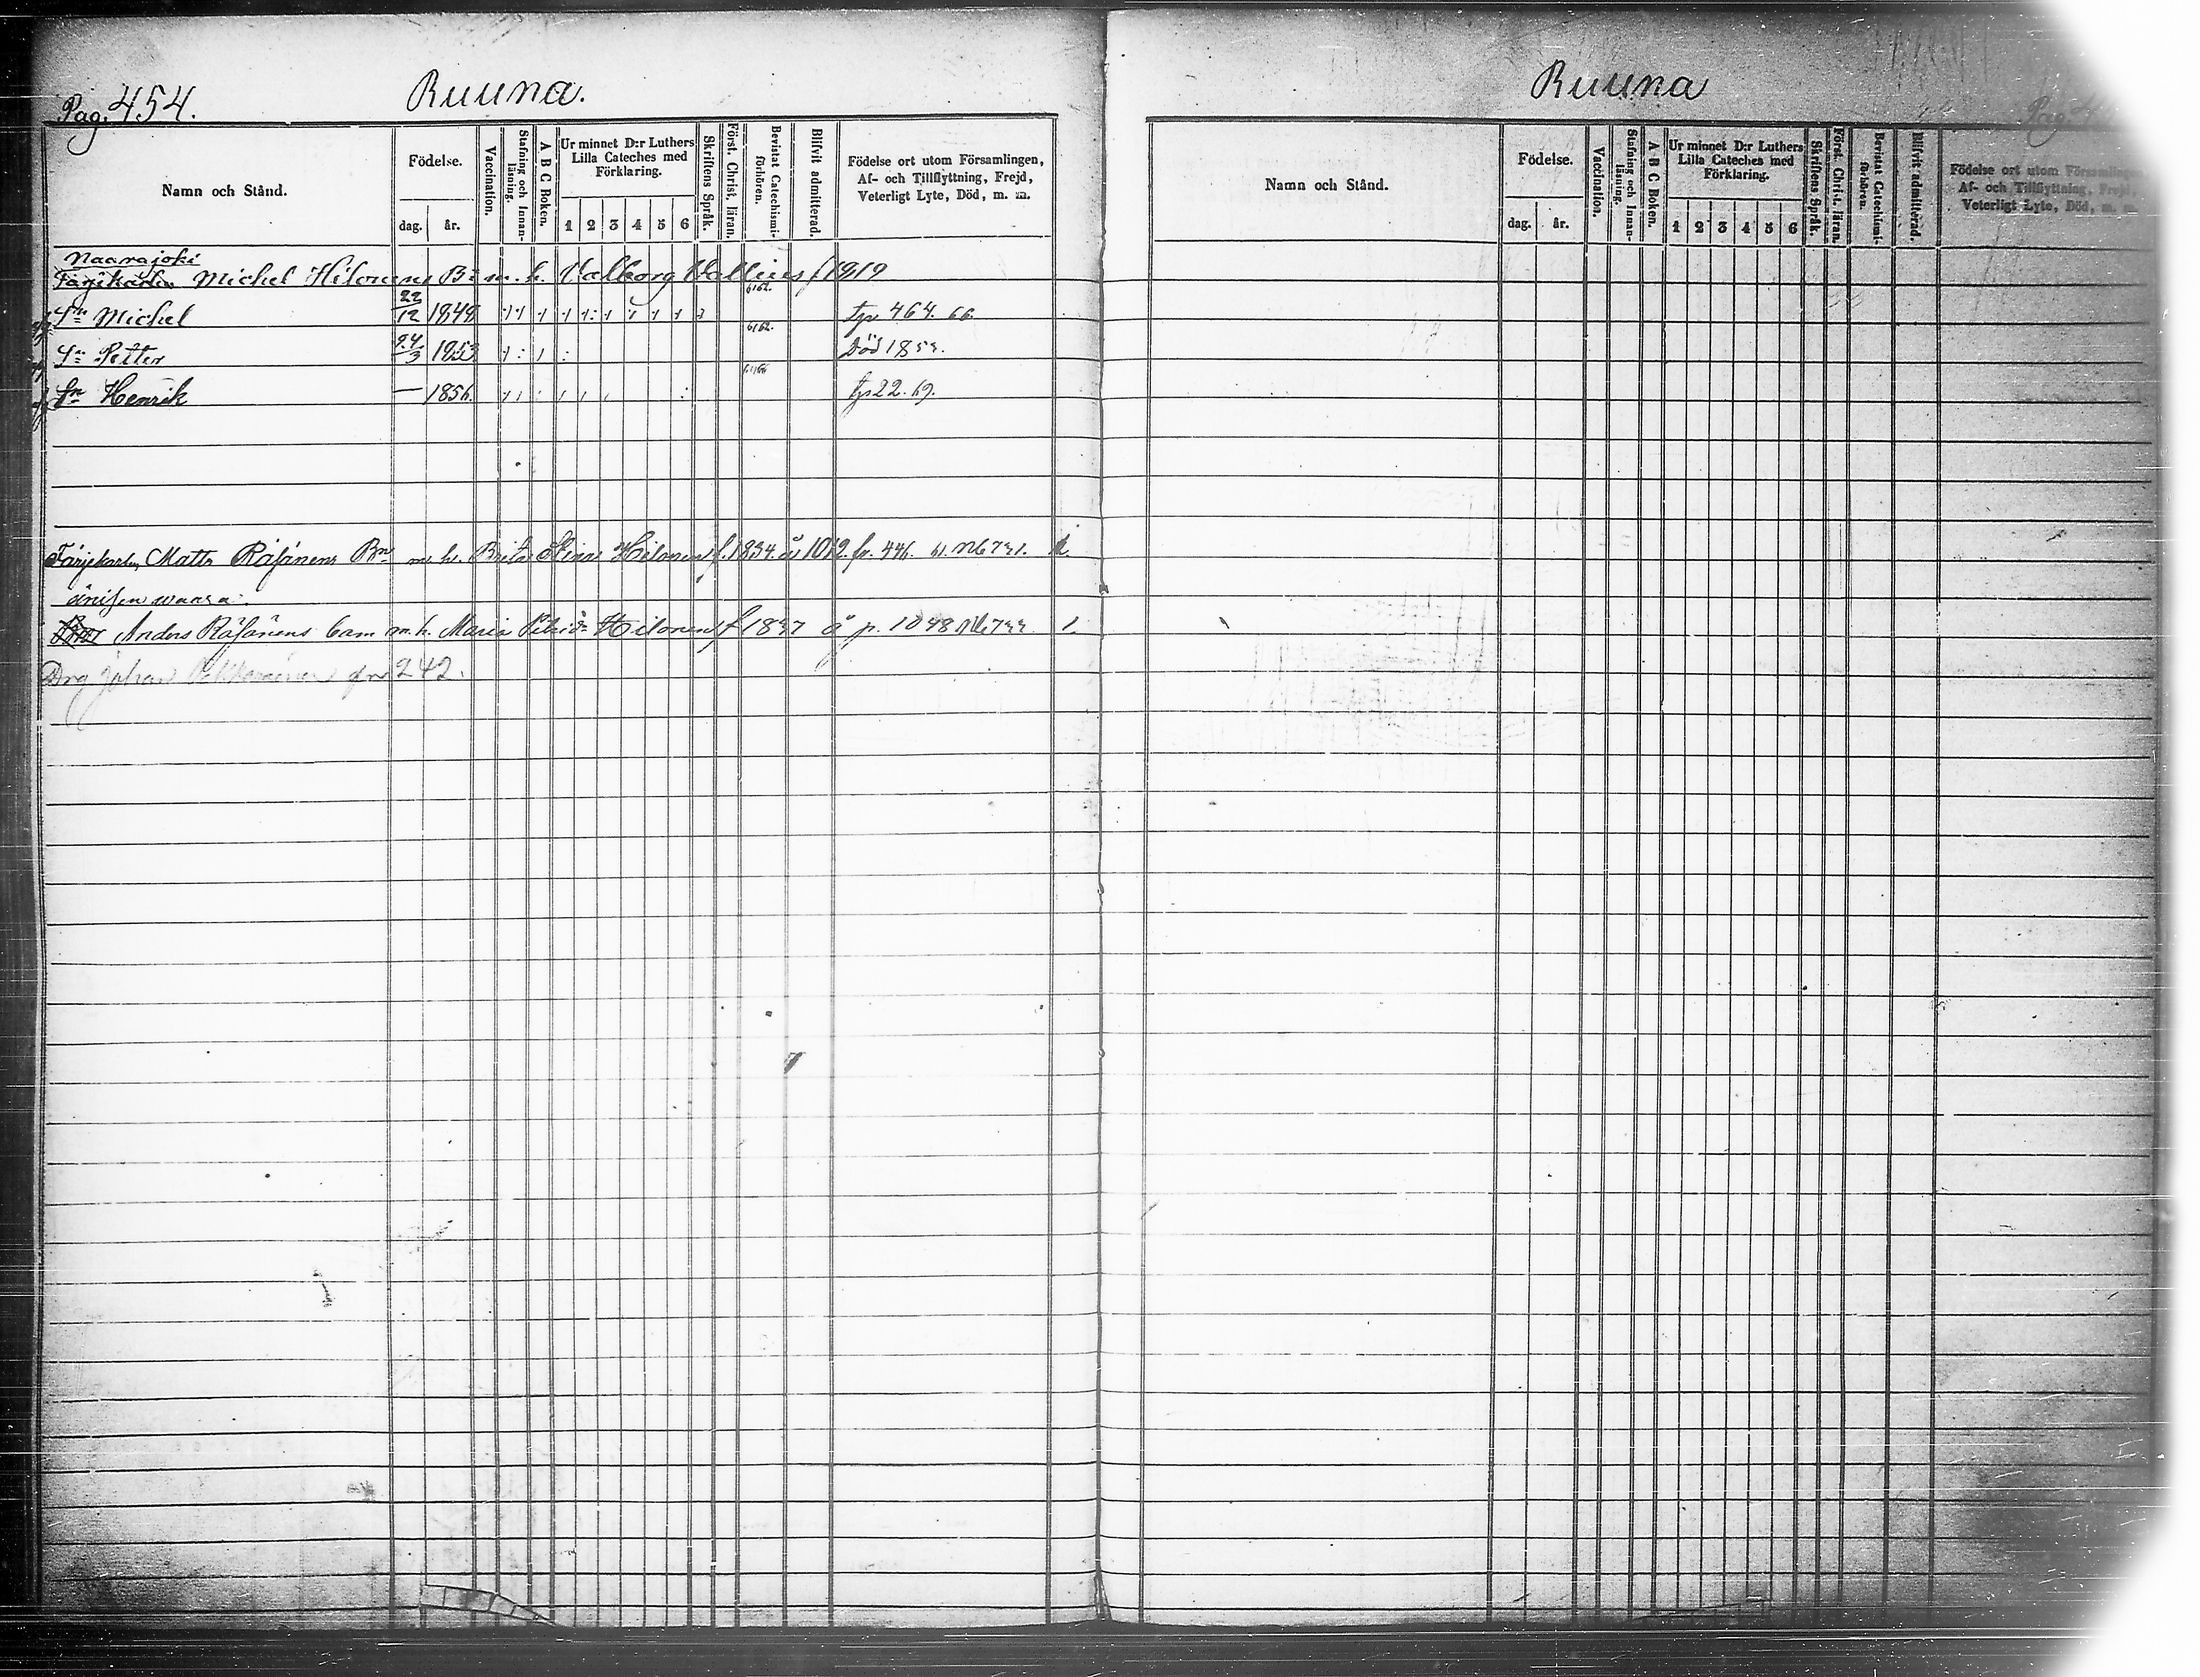 Pag. 454.
Ruuna.
Namn och Stånd.
Födelse.
dag.
år.
Vaccination.
Stafning och Innanläsning.
A B C Boken.
Ur minnet D:r Luthers Lilla Cateches med Förklaring.
1 2 3 4 5 6
Skriftens Språk.
Först. Christ. läran.
Bevistat Catechismiförhören.
Blifvit admitterad.
Födelse ort utom Församlingen,
Af- och Tillflyttning, Frejd,
Veterligt Lyte, Död, m. m.
Naarajoki
Michel Hilonens Bn m. h. Valborg f 1819
Sn Michel 22/12 1848 464. 66.
Sn Petter 24/3 1853 Död
Sn Henrik — 1856 22. 69.
Färjekarlen Matts Räsänens Bn m. h. Brita Stina Hilonens f. 1834 å 1012 fr. 446. 61.
Anders Räsänens barn m. h. Maria Hilonens f å p. 1048
Drg Johan 242.
Ruuna
Pag.
Namn och Stånd.
Födelse.
dag.
år.
Vaccination.
Stafning och Innanläsning.
A-B-C Boken.
Ur minnet D:r Luthers Lilla Cateches med Förklaring.
1 2 3 4 5 6
Skriftens Språk.
Först. Christ. läran.
Bevistat Catechismiförhören.
Blifvit admitterad.
Födelse ort utom Församlingen
Af- och Tillflyttning, Frejd,
Veterligt Lyte, Död, m. m.